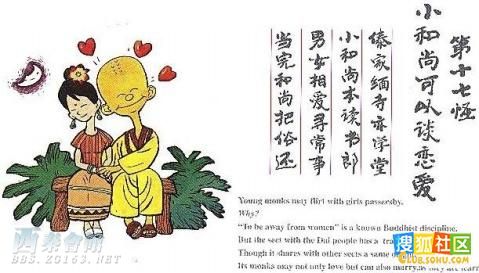 第十七怪
小和尚可以谈恋爱
傣家缅寺亦学堂
小和尚本读书郎
男女相爱寻常事
当完和尚把俗还
Young monks may flirt with girls passersby.
Why?
"To be away from women" is a known Buddhist discipline.
But the sect with the Dai people has a
Though it shares with other sects a same
Its monks may not only love but can also marry, as they are
西秦會館
BBS.ZG163.NET
搜狐社区
CLUB.SOHU.COM